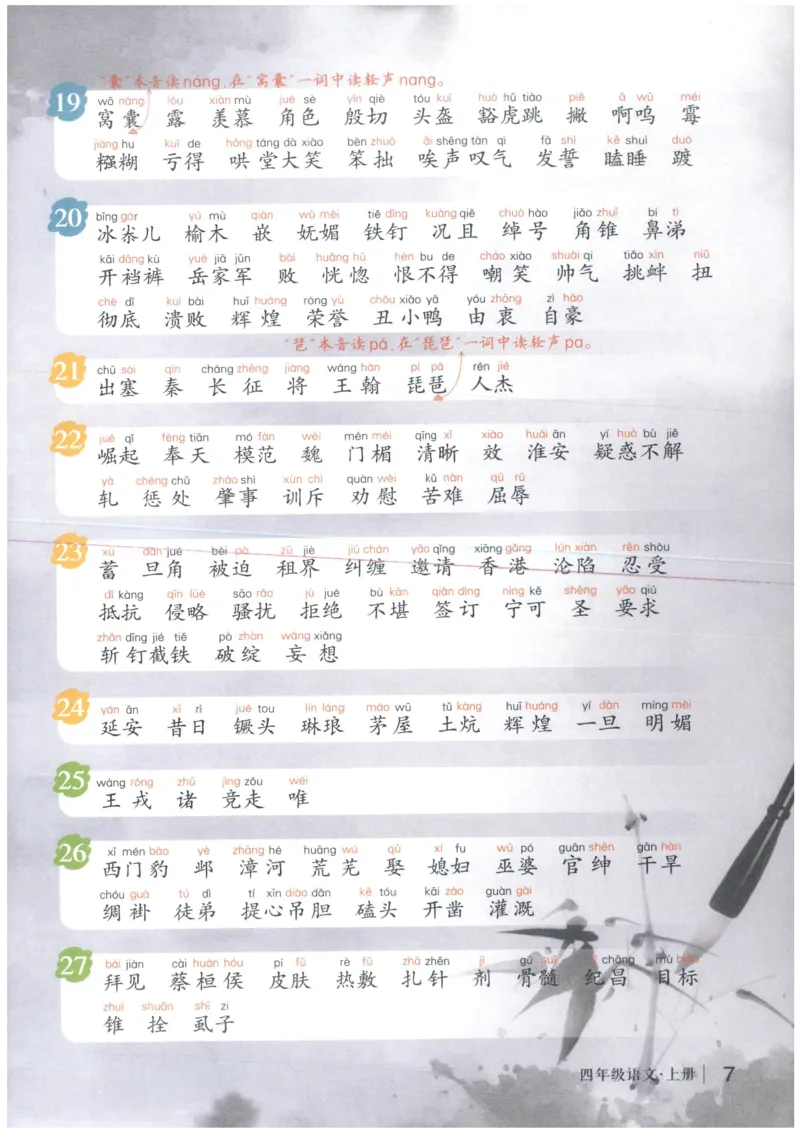 “囊”本音读náng,在“窝囊”一词中读轻声nang。
19
wō nang lòu xiàn mù jué sè yīn qiè tóu kuī huō hǔ tiào piě ā wū méi
窝囊 露 羡慕 角色 殷切 头盔 豁虎跳 撇 啊呜 霉
jiàng hu kuī de hōng táng dà xiào bèn zhuō āi shēng tàn qì fā shì kē shuì duó
糨糊 亏得 哄堂大笑 笨拙 唉声叹气 发誓 瞌睡 踱
20
bīng gár yú mù qiàn wǔ mèi tiě dīng kuàng qiě chuò hào jiǎo zhuī bí tì
冰尜儿 榆木 嵌 妩媚 铁钉 况且 绰号 角锥 鼻涕
kāi dāng kù yuè jiā jūn bài huǎng hū hèn bu de cháo xiào shuài qì tiǎo xìn niǔ
开裆裤 岳家军 败 恍惚 恨不得 嘲笑 帅气 挑衅 扭
chè dǐ kuì bài huī huáng róng yù chǒu xiǎo yā yóu zhōng zì háo
彻底 溃败 辉煌 荣誉 丑小鸭 由衷 自豪
“琶”本音读pá,在“琵琶”一词中读轻声pa。
21
chū sài qín cháng zhēng jiàng wáng hàn pí pá rén jié
出塞 秦 长征 将 王翰 琵琶 人杰
22
jué qǐ fèng tiān mó fàn wèi mén méi qīng xī xiào huái ān yí huò bù jiě
崛起 奉天 模范 魏 门楣 清晰 效 淮安 疑惑不解
yà chéng chǔ zhào shì xùn chì quàn wèi kǔ nàn qū rǔ
轧 惩处 肇事 训斥 劝慰 苦难 屈辱
23
xù dàn jué bèi pò zū jiè jiū chán yāo qǐng xiāng gǎng lún xiàn rěn shòu
蓄 旦角 被迫 租界 纠缠 邀请 香港 沦陷 忍受
dǐ kàng qīn lüè sāo rǎo jù jué bù kān qiān dìng nìng kě shèng yāo qiú
抵抗 侵略 骚扰 拒绝 不堪 签订 宁可 圣 要求
zhǎn dīng jié tiě pò zhàn wàng xiǎng
斩钉截铁 破绽 妄想
24
yán ān xī rì jué tou lín láng máo wū tǔ kàng huī huáng yí dàn míng mèi
延安 昔日 镢头 琳琅 茅屋 土炕 辉煌 一旦 明媚
25
wáng róng zhū jìng zǒu wéi
王戎 诸 竞走 唯
26
xī mén bào yè zhāng hé huāng wú qǔ xí fu wū pó guān shēn gān hàn
西门豹 邺 漳河 荒芜 娶 媳妇 巫婆 官绅 干旱
chóu guà tú dì tí xīn diào dǎn kē tóu kāi záo guàn gài
绸褂 徒弟 提心吊胆 磕头 开凿 灌溉
27
bài jiàn cài huán hóu pí fū rè fū zhā zhēn jì gǔ suǐ jǐ chāng mù biāo
拜见 蔡桓侯 皮肤 热敷 扎针 剂 骨髓 纪昌 目标
zhuī shuān shī zi
锥 拴 虱子
四年级语文·上册 7